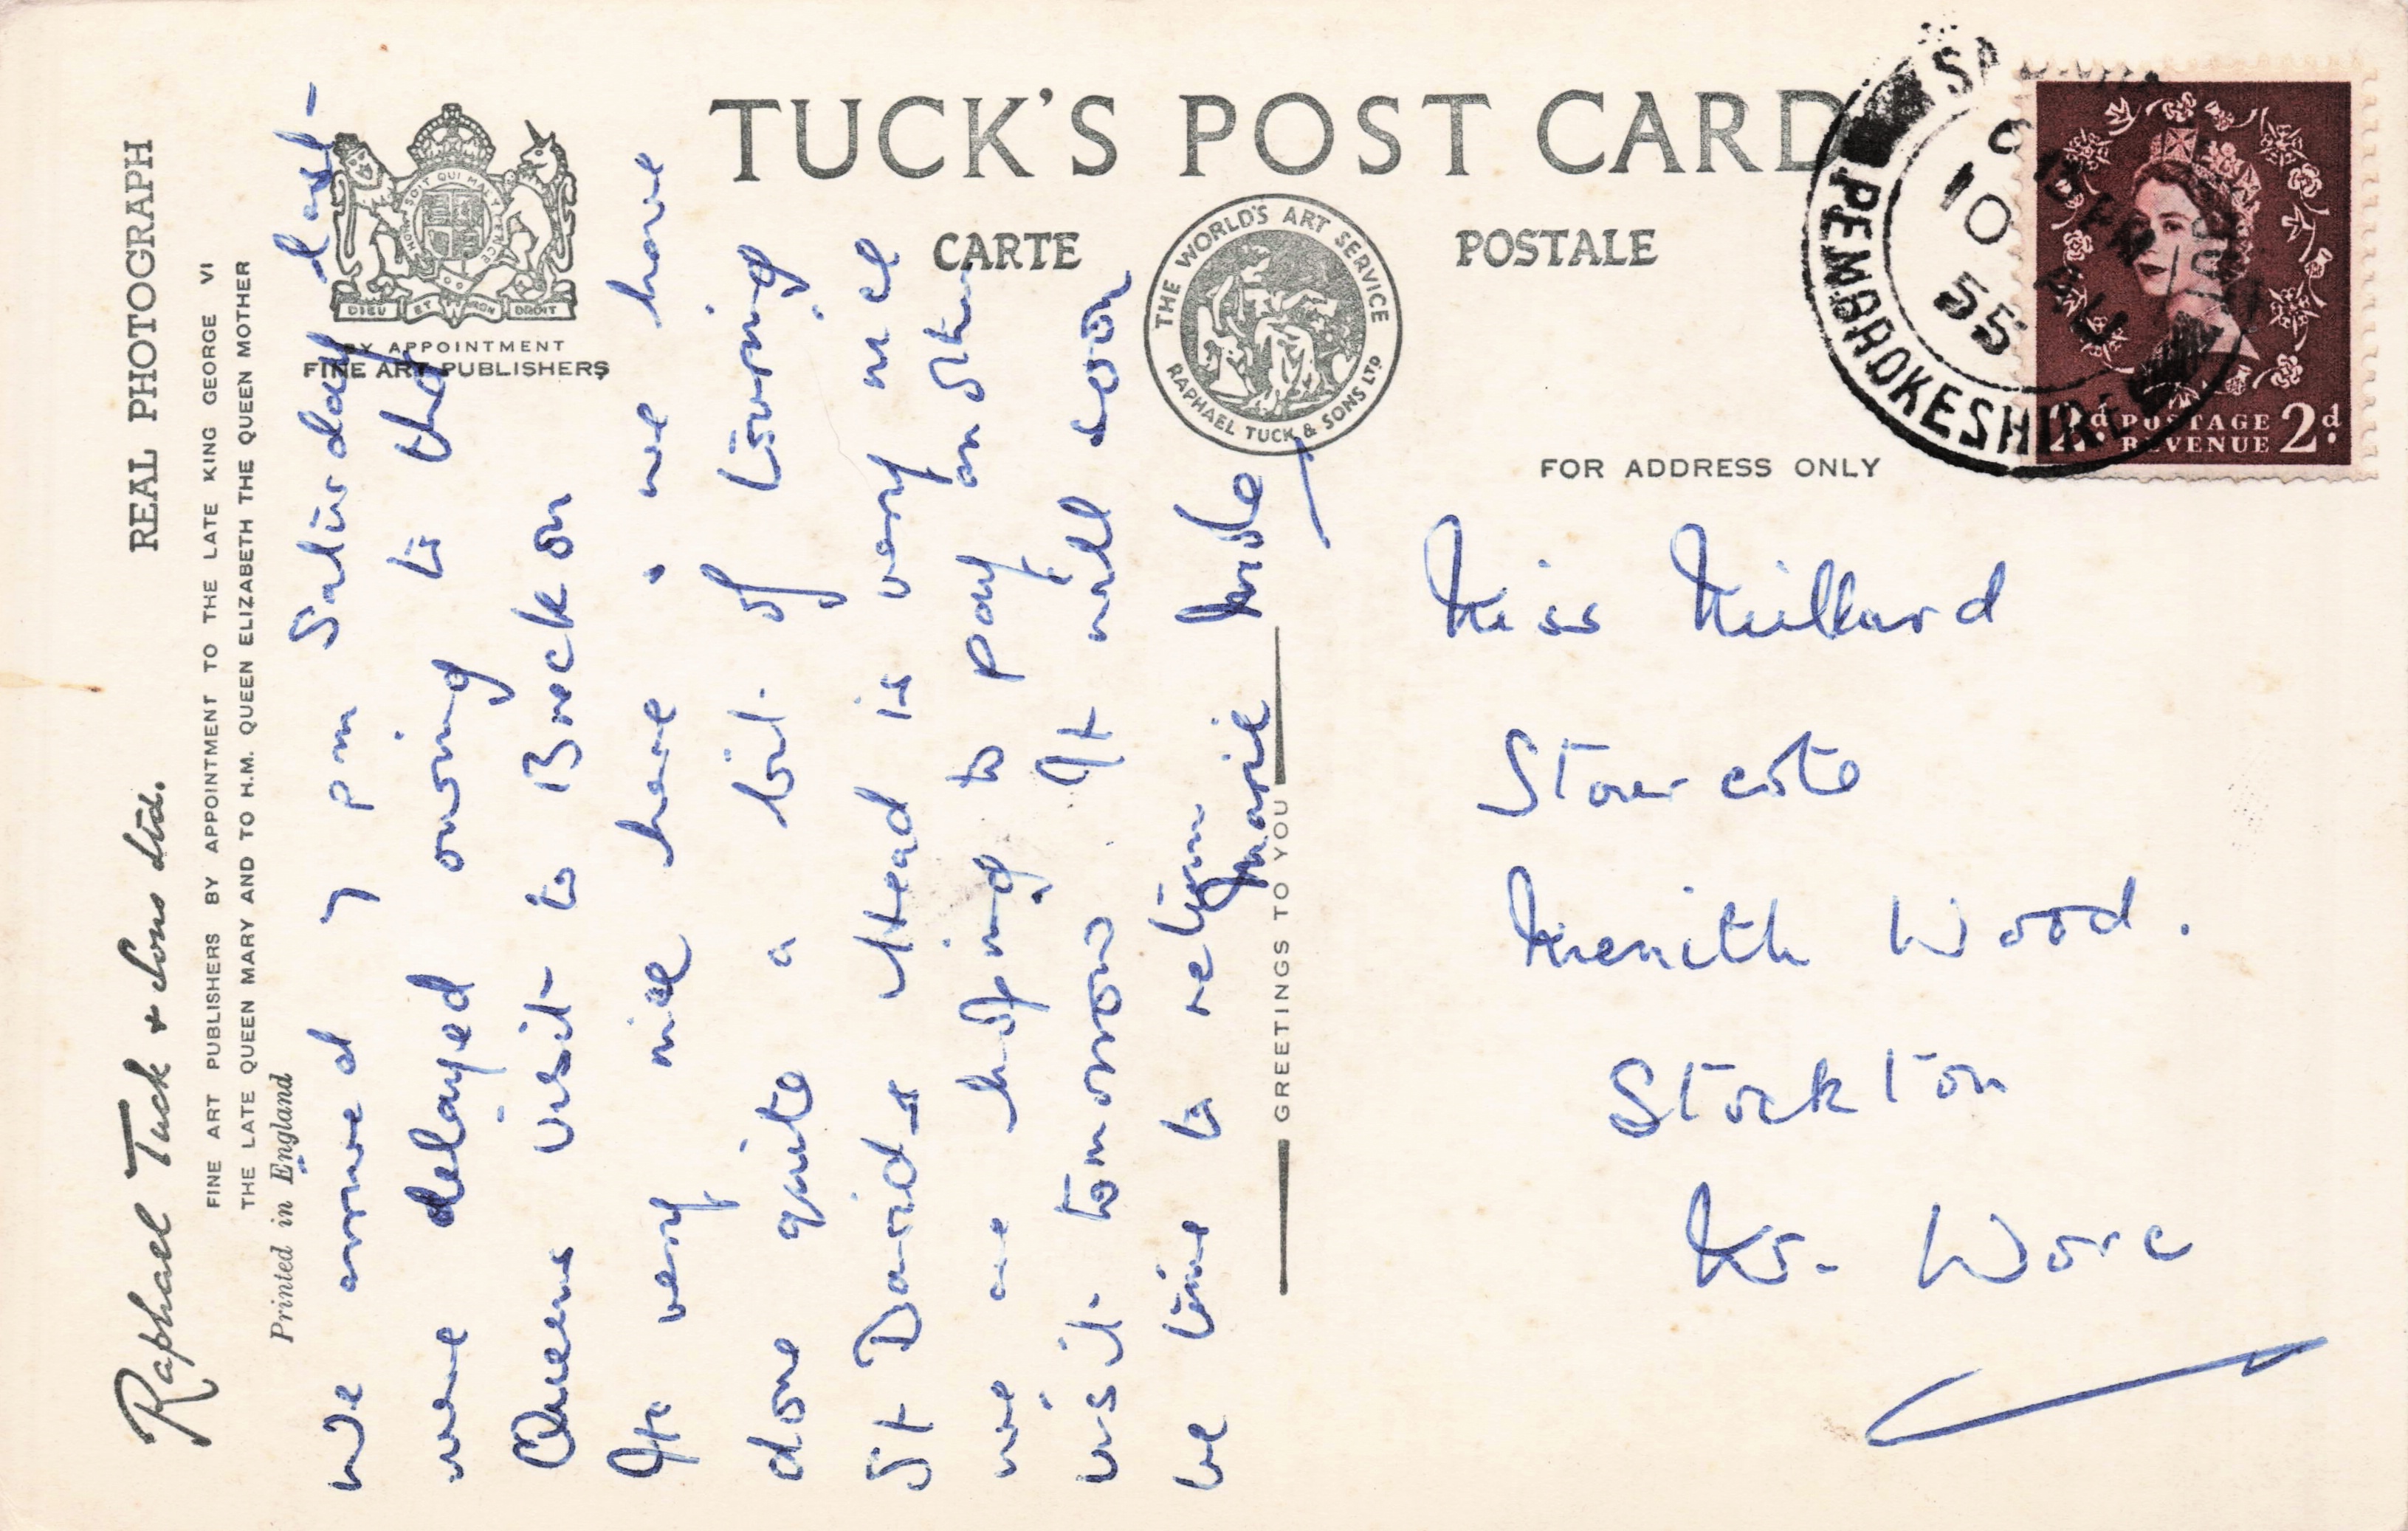 TUCK'S POST CARD
CARTE POSTALE
THE WORLD'S ART SERVICE
RAPHAEL TUCK & SONS LTD
FOR ADDRESS ONLY
REAL PHOTOGRAPH
Raphael Tuck & Sons Ltd.
FINE ART PUBLISHERS BY APPOINTMENT TO THE LATE KING GEORGE VI
THE LATE QUEEN MARY AND TO H.M. QUEEN ELIZABETH THE QUEEN MOTHER
Printed in England
HONI SOIT QUI MAL Y PENSE
DIEU ET MON DROIT
BY APPOINTMENT
FINE ART PUBLISHERS
We arrived 7 pm Saturday last -
were delayed owing to the
Queens visit to Brecon
Its very nice here & we have
done quite a bit of touring
St Davids Head is very nice
we are hoping to pay another
visit tomorrow. It will soon
be time to return
Marie
GREETINGS TO YOU
PEMBROKESHIRE
10
AU
55
2d. POSTAGE 2d.
REVENUE
Miss Millard
Stourcote
Menith Wood.
Stockton
Wor. Worc